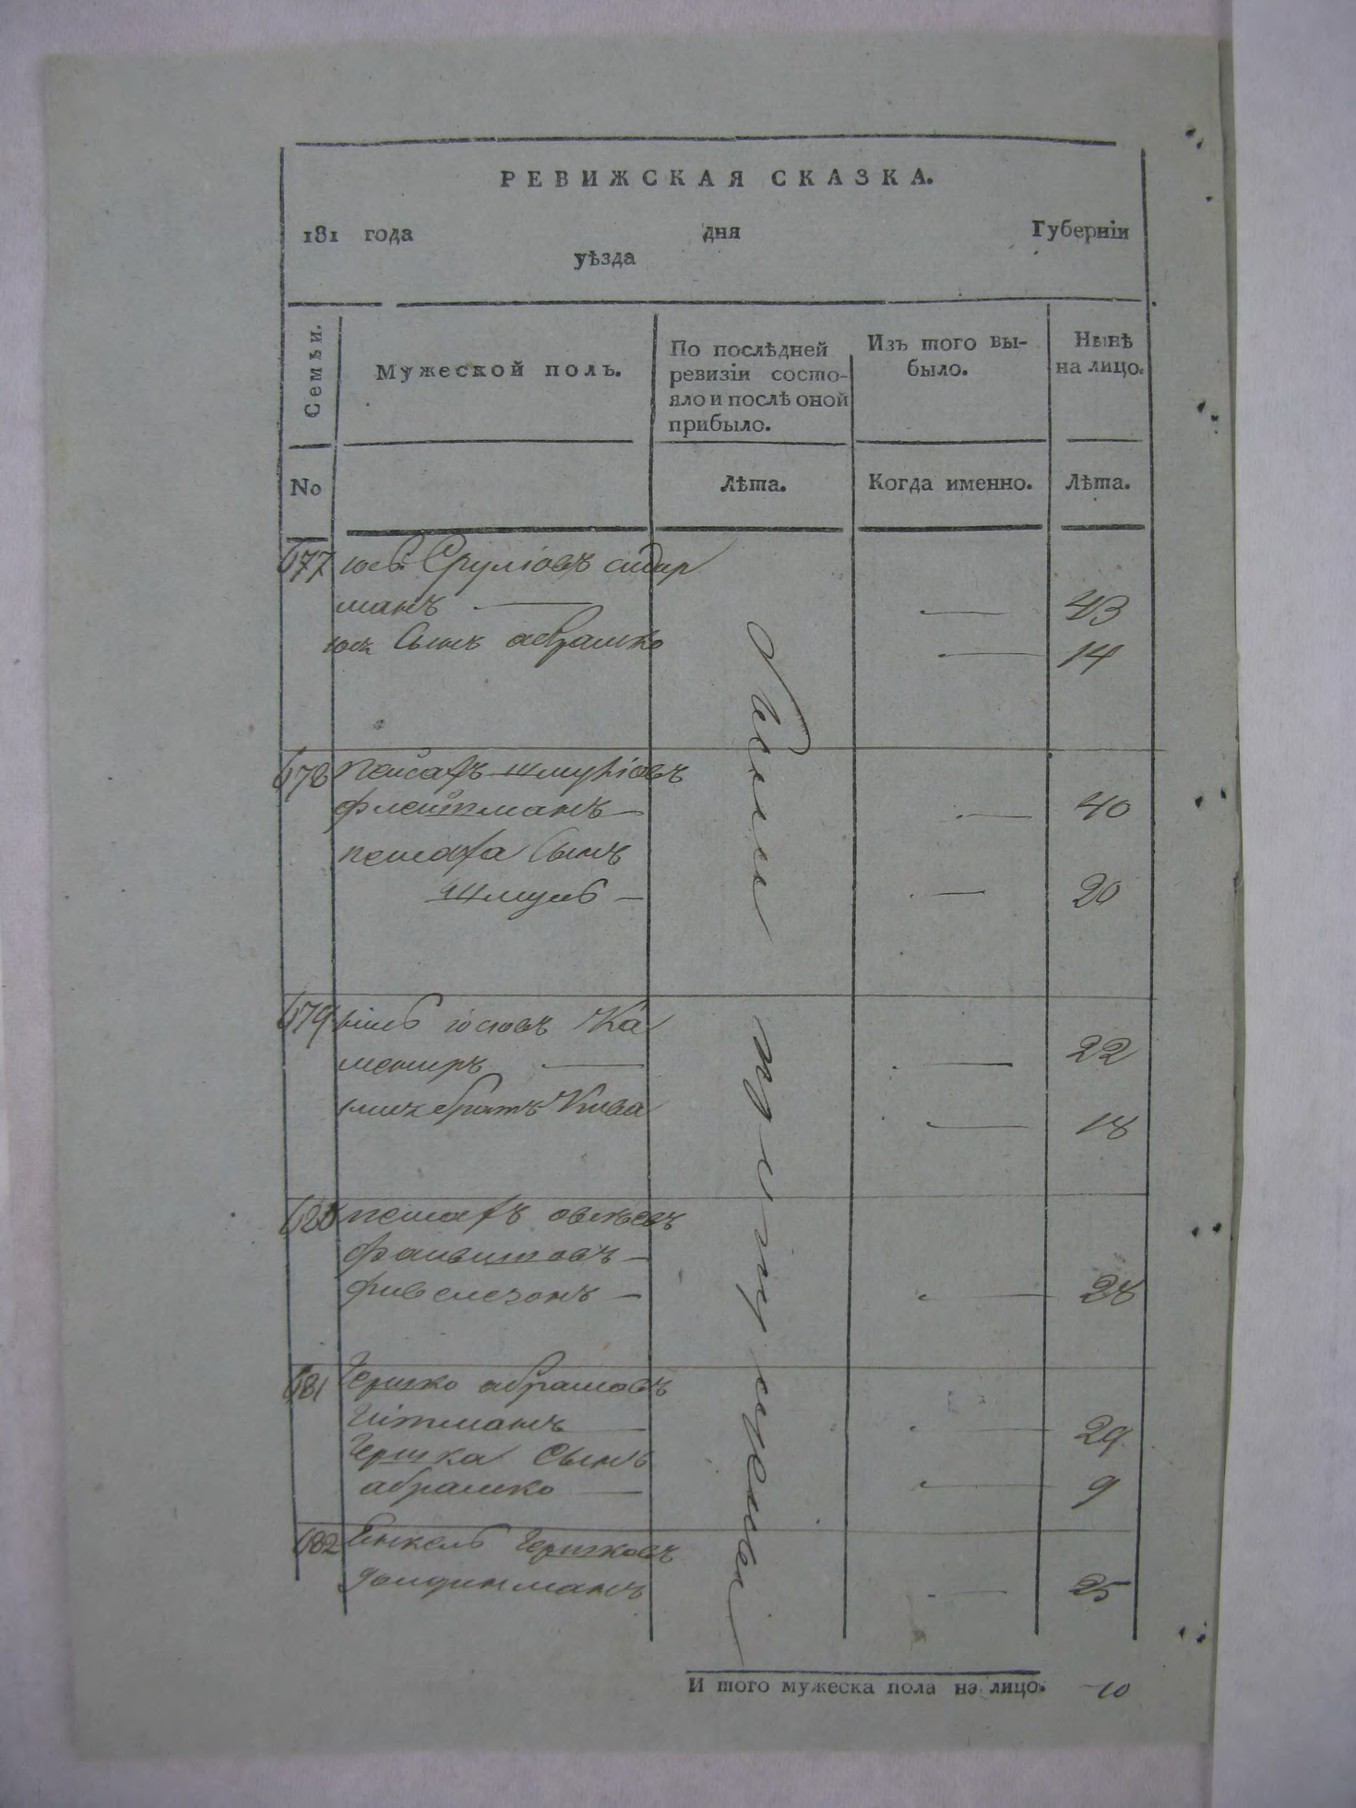 РЕВИЖСКАЯ СКАЗКА.
181 года дня Губерніи
уѣзда
Семьи.
Мужеской полъ.
По послѣдней
ревизіи состо-
яло и послѣ оной
прибыло.
Изъ того вы-
было.
Нынѣ
на лицо.
No
Лѣта.
Когда именно.
Лѣта.
677 Срулiовъ сидер
манъ — — 43
Сынъ абрамко — 14
678 пейсахъ шмулiовъ
флейтманъ — — 40
пейсаха Сынъ
Шмуль — — 20
679 іосіовъ Ка
мениръ — — 22
братъ Кива — 18
680 пейсахъ
— 28
681 Гершко абрамовъ
Гитманъ — — 29
Гершка Сынъ
абрамко — — 9
682 Янкель Гершковъ
— 25
И того мужеска пола на лицо. 10